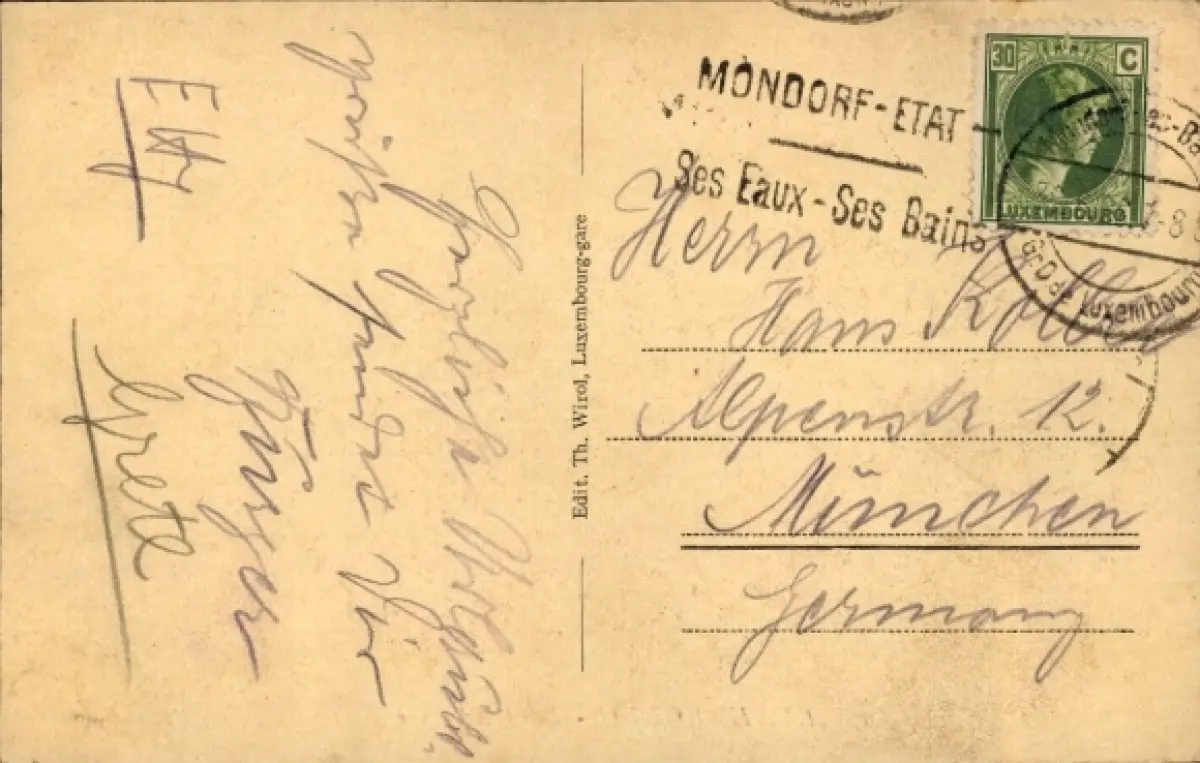 Herzliche
grüße sendet Dir
Grete
Edit. Th. Wirol, Luxembourg-gare
MONDORF-ETAT
Ses Eaux - Ses Bains
30 C
LUXEMBOURG
Gr. D. de Luxembourg
Herrn
Hans
Alpenstr. 12.
München
Germany